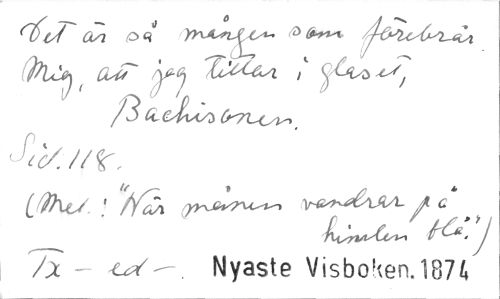 Det är så mången som förebrår
Mig, att jag tittar i glaset,
Bachisonen.
Sid. 118.
(Mel.: "När månen vandrar på
himlen blå.")
Tx - ed -. Nyaste Visboken. 1874